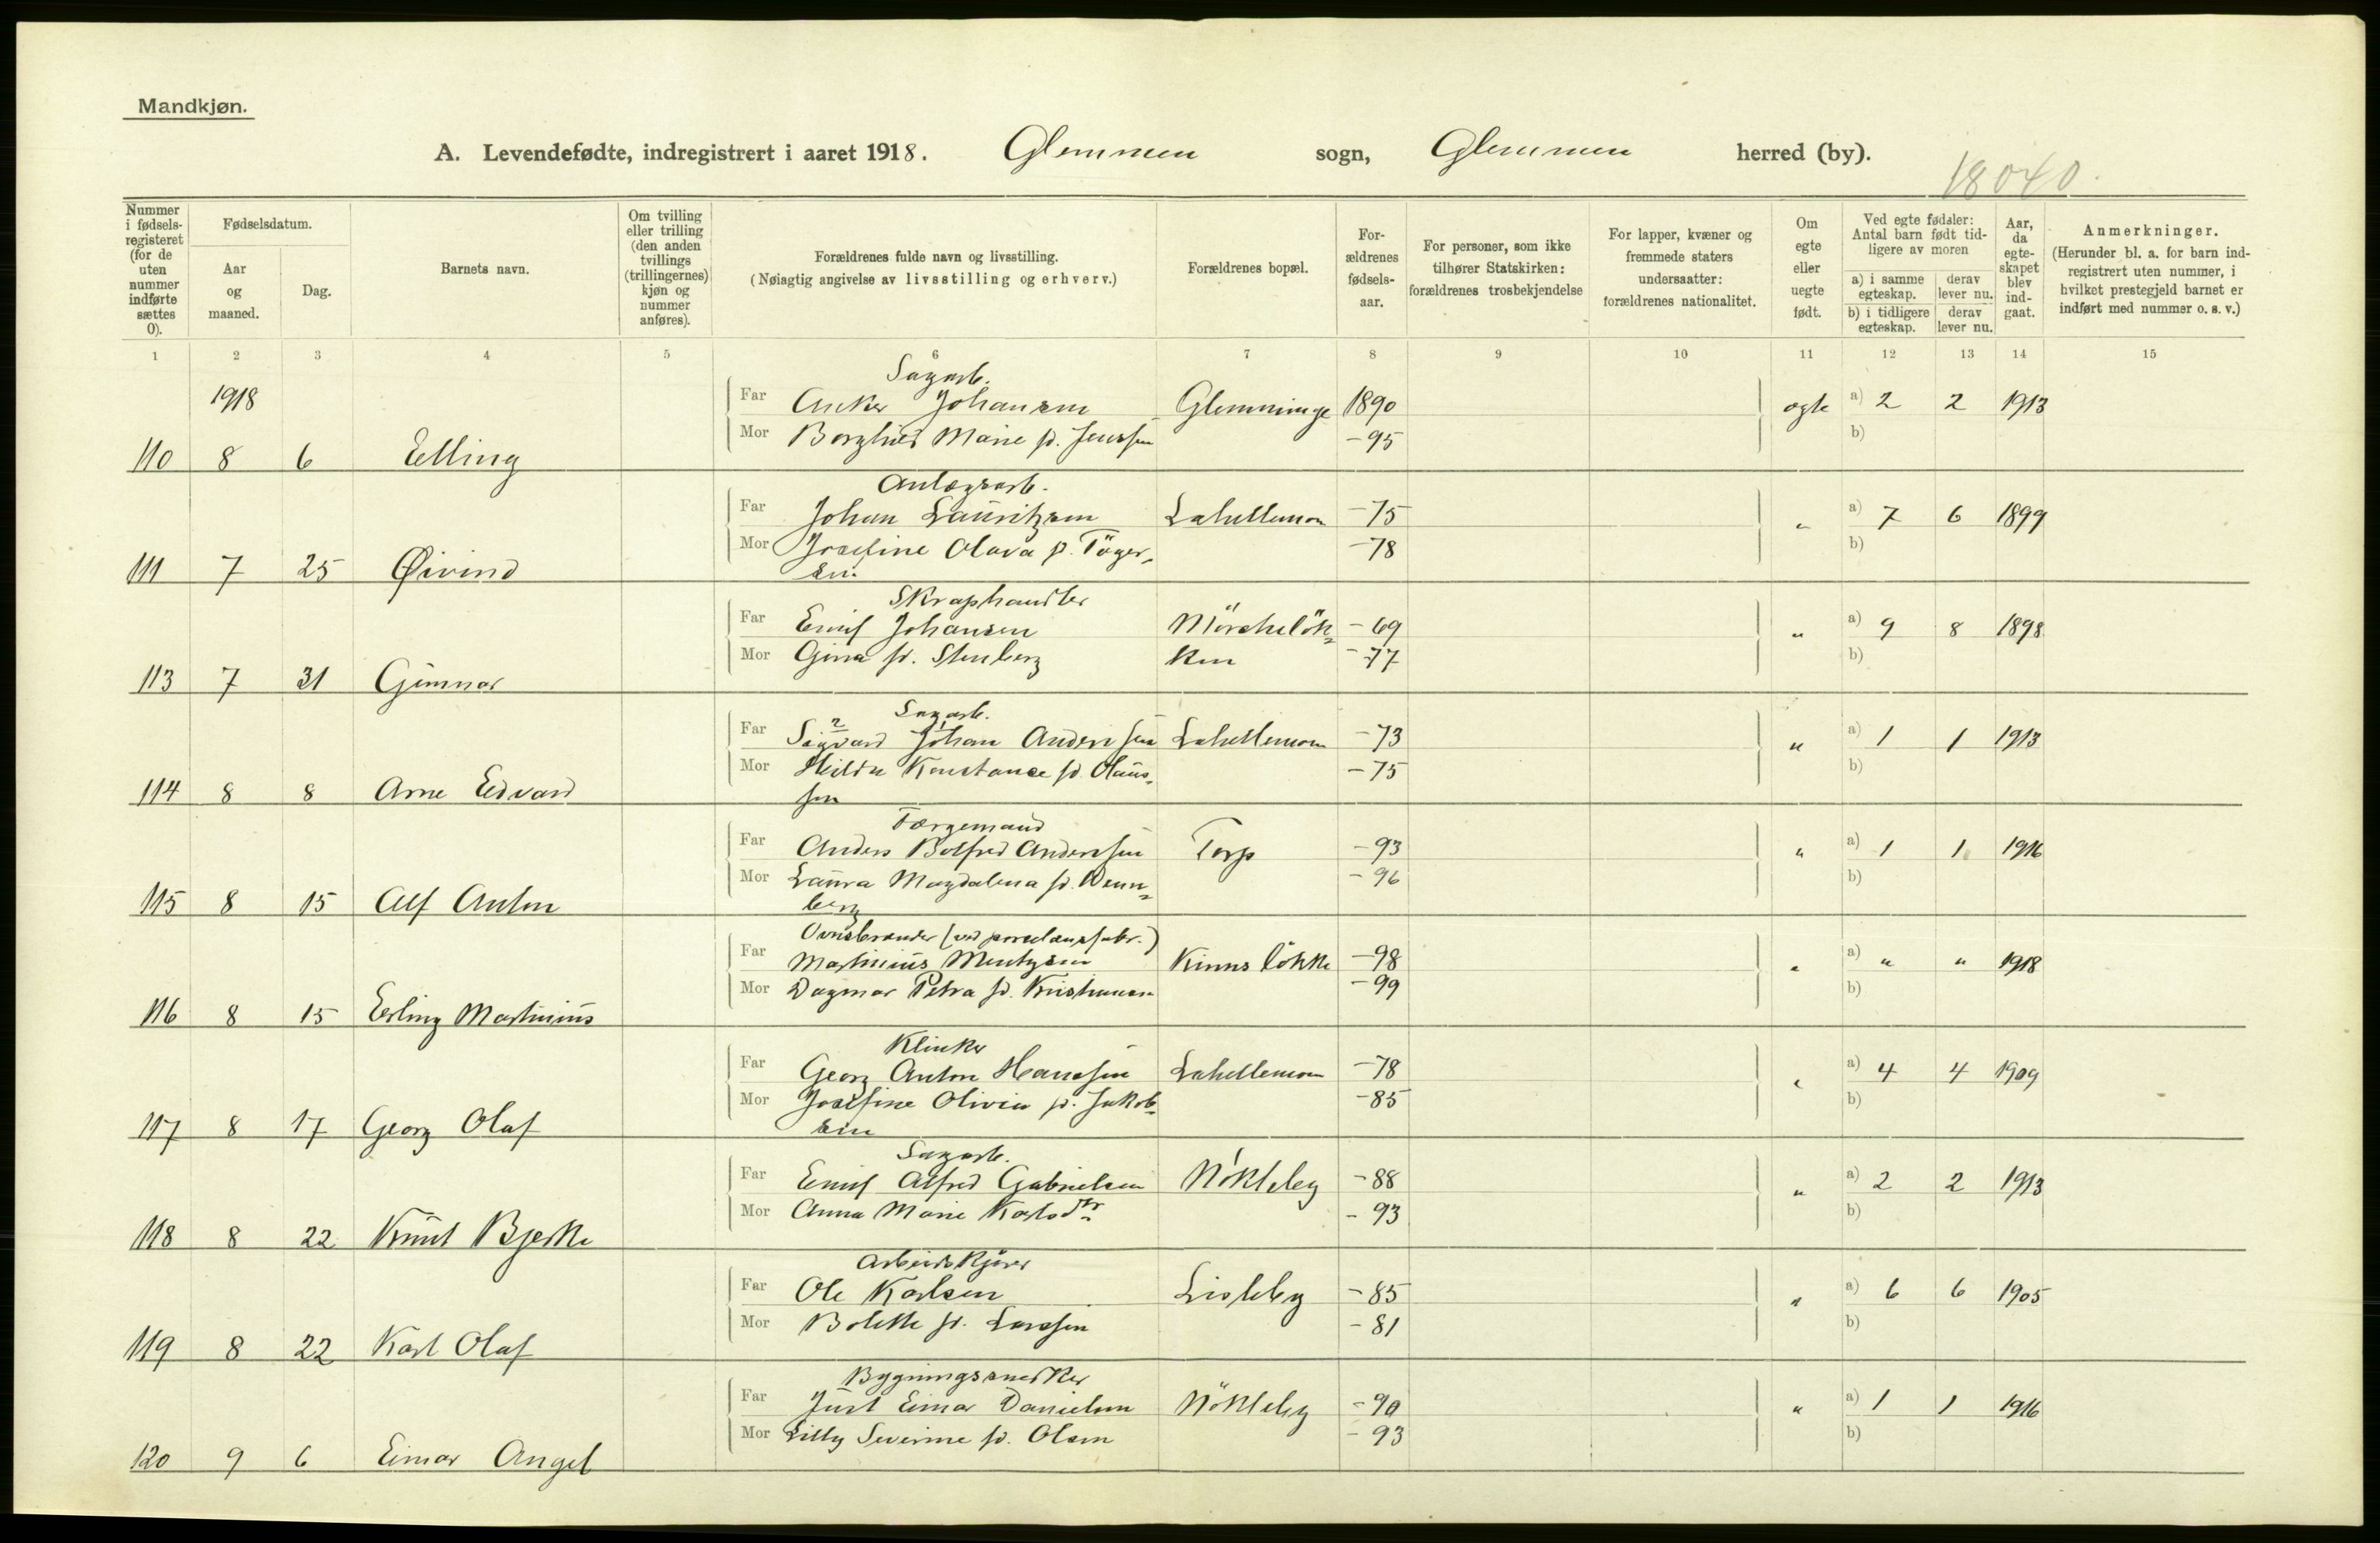 Mandkjøn.
A. Levendefødte, indregistrert i aaret 1918. Glemmen sogn, Glemmen herred (by).
18040.
Nummer i fødsels-registeret (for de uten nummer indførte sættes 0).
Fødselsdatum.
Aar og maaned.
Dag.
Barnets navn.
Om tvilling eller trilling (den anden tvillings (trillingernes) kjøn og nummer anføres).
Forældrenes fulde navn og livsstilling.
(Nøiagtig angivelse av livsstilling og erhverv.)
Forældrenes bopæl.
For-ældrenes fødsels-aar.
For personer, som ikke tilhører Statskirken: forældrenes trosbekjendelse
For lapper, kvæner og fremmede staters undersaatter: forældrenes nationalitet.
Om egte eller uegte født.
Ved egte fødsler: Antal barn født tid-ligere av moren
a) i samme egteskap. derav lever nu.
b) i tidligere egteskap. derav lever nu.
Aar, da egte-skapet blev ind-gaat.
Anmerkninger.
(Herunder bl. a. for barn ind-registrert uten nummer, i hvilket prestegjeld barnet er indført med nummer o. s. v.)
1 2 3 4 5 6 7 8 9 10 11 12 13 14 15
Sagarb.
1918 Far Anker Johansen Glemminge 1890 egte a) 2 2 1913
Mor Borghild Marie f. Jenssen -95 b)
110 8 6 Elling
Anlægsarb.
Far Johan Lauritzen Lahellemoen -75 " a) 7 6 1899
Mor Josefine Olava f. Töger-
sen -78 b)
111 7 25 Øivind
Skraphandler
Far Emil Johansen Mörchelök= -69 " a) 9 8 1898
Mor Gina f. Stenberg ken -77 b)
113 7 31 Gunnar
Sagarb.
Far Sigvard Johan Andersen Lahellemoen -73 " a) 1 1 1913
Mor Hilda Konstance f. Olaus-
sen -75 b)
114 8 8 Arne Edvard
Færgemand
Far Anders Botfred Andersen Torp -93 " a) 1 1 1916
Mor Laura Magdalena f. Wenn=
berg -96 b)
115 8 15 Alf Anton
Ovnsbrander (ved porcelænsfabr.)
Far Martinius Mentzsen Kinnslökke -98 " a) " " 1918
Mor Dagmar Petra f. Kristiansen -99 b)
116 8 15 Erling Martinius
Klinker
Far Georg Anton Hanssen Lahellemoen -78 " a) 4 4 1909
Mor Josefine Olivia f. Jakob-
sen -85 b)
117 8 17 Georg Olaf
Sagarb.
Far Emil Alfred Gabrielsen Nökleby -88 " a) 2 2 1913
Mor Anna Marie Karlsdtr -93 b)
118 8 22 Knut Bjerke
Arbeidskjörer
Far Ole Karlsen Lisleby -85 " a) 6 6 1905
Mor Bolette f. Larssen -81 b)
119 8 22 Karl Olaf
Bygningssnedker
Far Just Einar Danielsen Nökleby -90 " a) 1 1 1916
Mor Lilly Severine f. Olsen -93 b)
120 9 6 Einar Angel